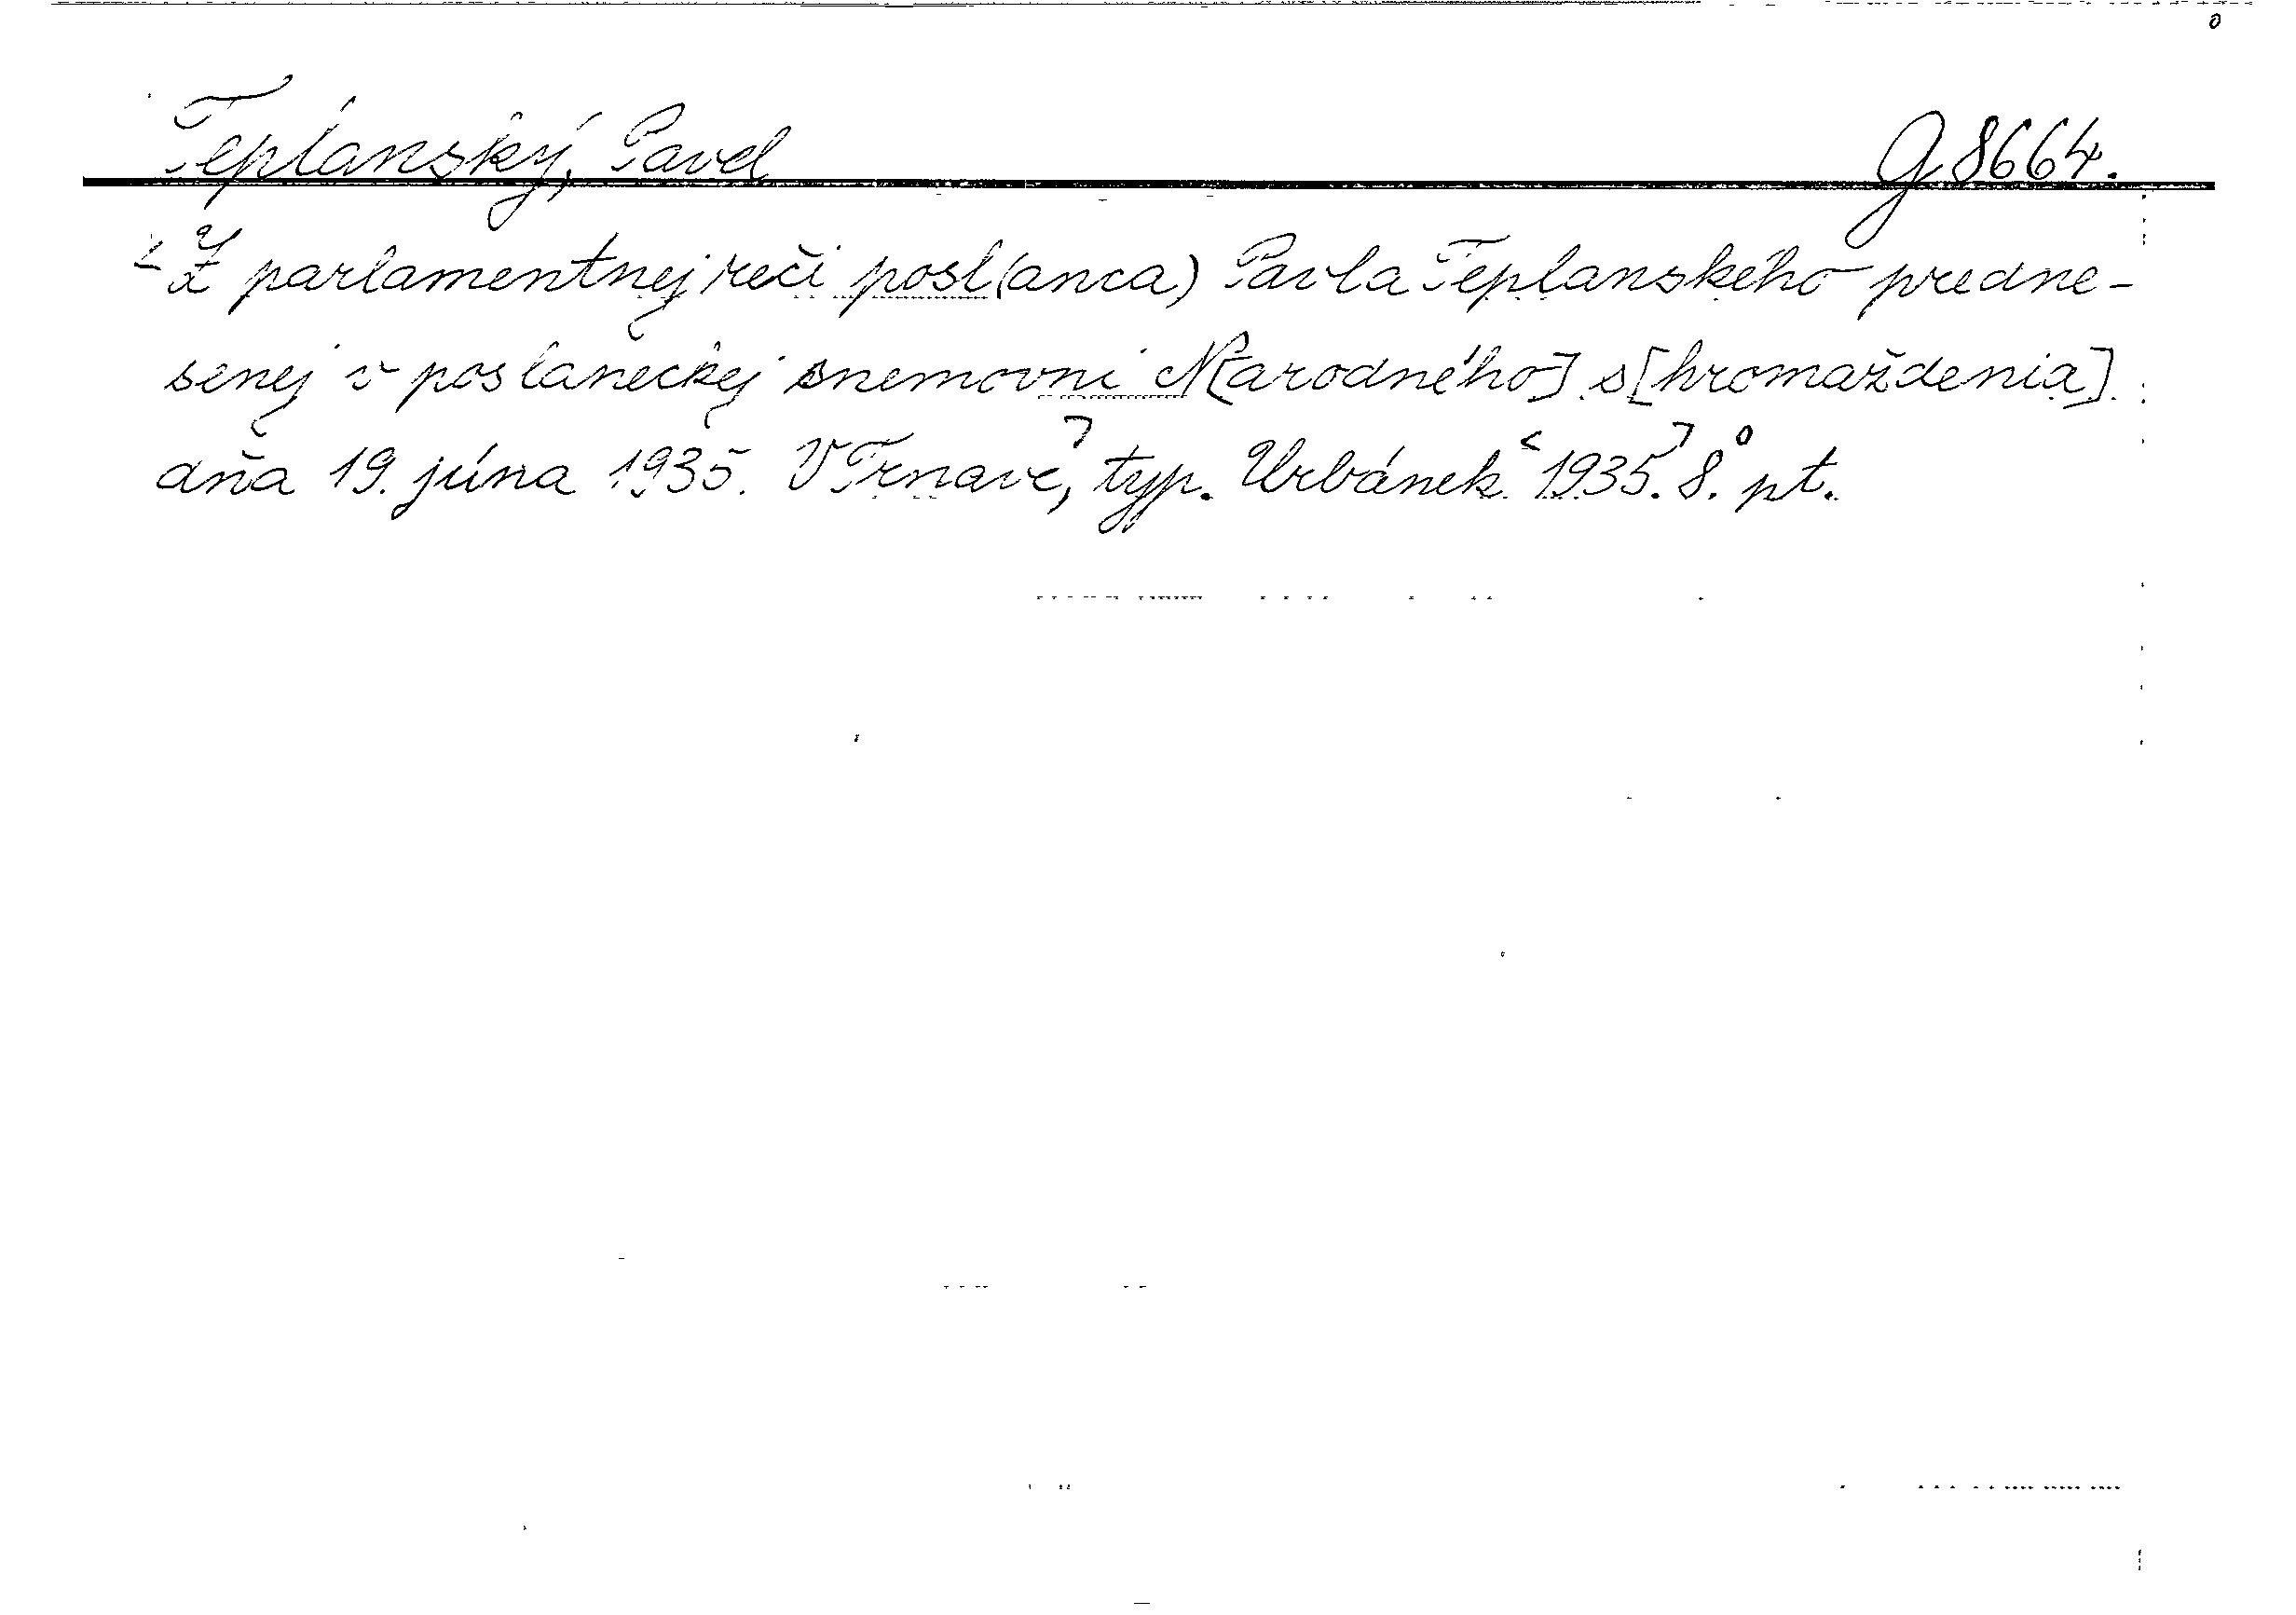 Teplanský, Pavel G 8664.
Z parlamentnej reči posl(anca) Pavla Teplanského predne-
senej v poslaneckej snemovni N[arodného] s[hromaždenia]
dňa 19. júna 1935. V Trnave, typ. Urbánek 1935. 8° pt.